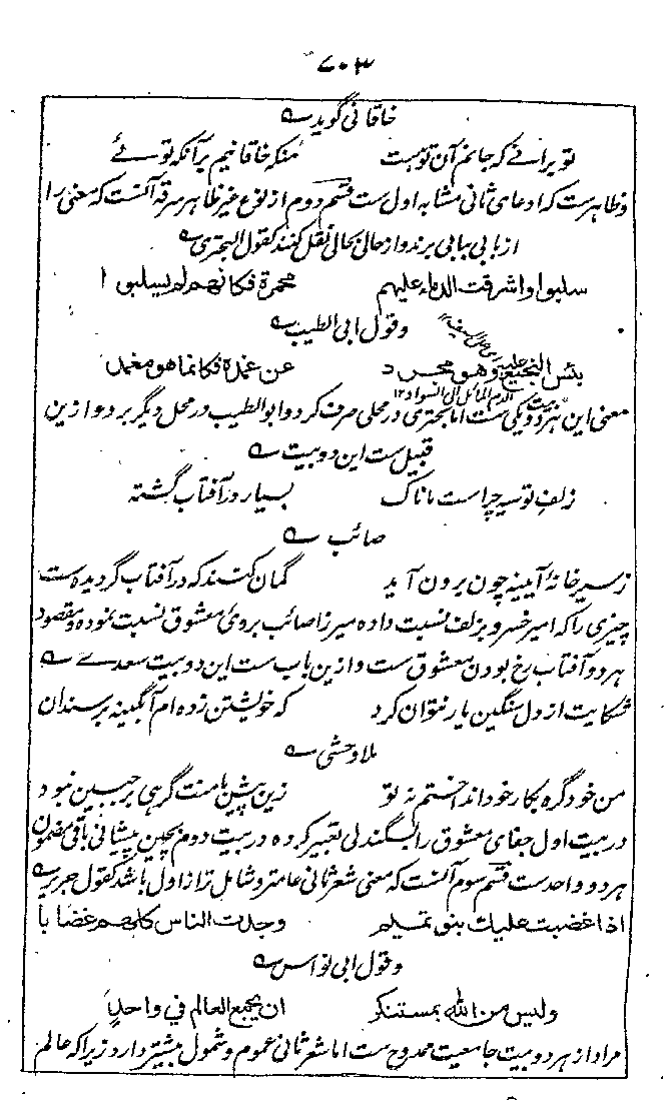 ۷۰۳
خاقانی گوید ے
تو برانے که جانم آن تو هست منکه خاقانیم برآنکه توئے
و ظاهرست که ادعای ثانی مشابه اول ست قسم دوم از نوع غیر ظاهر سرقه آنست که معنی را
از بابی ببابی برند و از حالی بحالی نقل کنند کقول البحتری ے
سلبوا و اشرقت الدماء علیهم محمرة فکانهم لم یسلبوا
و قول ابی الطیب ے
یبس النجیع علیه و هو مجرد عن غمده فکانما هو مغمد
الدم المائل الی السواد ۱۲
معنی این هر دو بیت یکی ست اما بحتری در محلی صرف کرد و ابو الطیب در محل دیگر برد و ازین
قبیل ست این دو بیت ے
زلف تو سیه چراست مانا ک بسیار در آفتاب گشته
صائب ے
ز سیر خانهٔ آیینه چون برون آید گمان کنند که در آفتاب گردیده ست
چیزی را که امیر خسرو بزلف نسبت داده میرزا صائب بروی معشوق نسبت نموده و مقصود
هر دو آفتاب رخ بودن معشوق ست و ازین باب ست این دو بیت سعدے ے
شکایت از دل سنگین یار نتوان کرد که خویشتن زده ام آبگینه بر سندان
ملا وحشی ے
من خود گره بکار خود انداختم ز تو زین پیش با منت گرهی بر جبین نبود
در بیت اول جفای معشوق را بسنگدلی تعبیر کرده در بیت دوم بچین پیشانی باقی مضمون
هر دو واحدست قسم سوم آنست که معنی شعر ثانی عامتر و شامل تر از اول باشد کقول جریر ے
اذا غضبت علیک بنو تمیم وجدت الناس کلهم غضابا
و قول ابی نواس ے
و لیس من الله بمستنکر ان یجمع العالم فی واحد
مراد از هر دو بیت جامعیت ممدوح ست اما شعر ثانی عموم و شمول بیشتر دارد زیرا که عالم